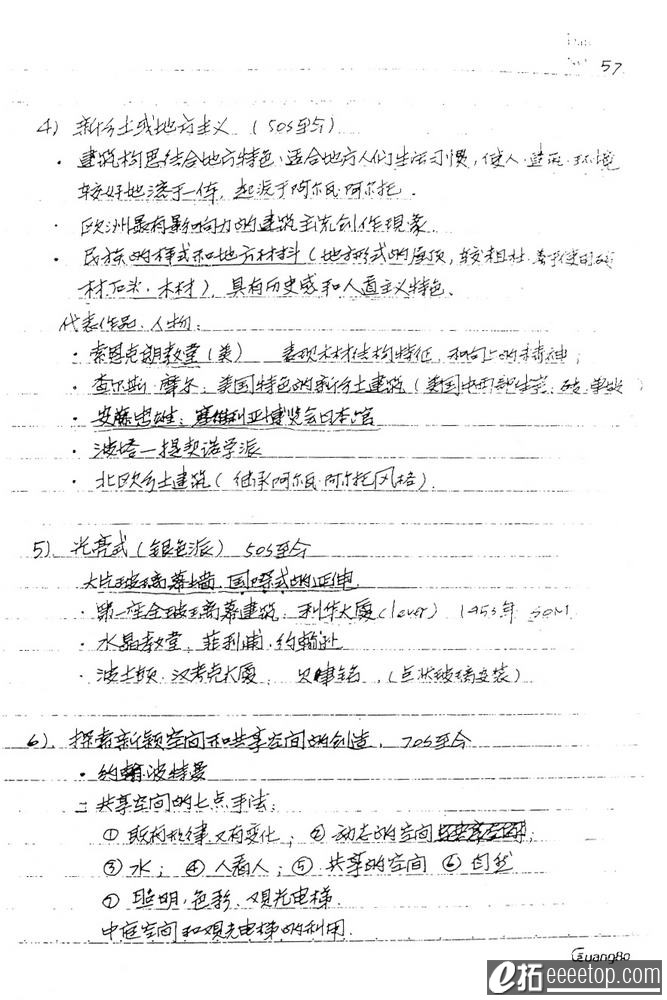 57
4) 新乡土或地方主义 (50s至今)
· 建筑构思结合地方特色·适合地方人们生活习惯,使人·建筑·环境
较好地溶于一体,起源于阿尔瓦阿尔托.
· 欧洲最有影响力的建筑主流创作现象
· 民族的样式和地方材料(地方形式的屋顶,较粗壮.
材石头·木材),具有历史感和人道主义特色、
代表作品·人物:
· 索恩克朗教堂(美) 表现木材结构特征,和向上的精神;
· 查尔斯·摩尔:美国特色的新乡土建筑(美国中西部
· 安藤忠雄:塞维利亚博览会日本馆
· 波塔—提契诺学派
· 北欧乡土建筑(继承阿尔瓦阿尔托风格).
5) 光亮式(银色派) 50s至今
大片玻璃幕墙.国际式的延伸.
· 第一座全玻璃幕建筑:利华大厦(lever) 1953年 SOM
· 水晶教堂,菲利浦·约翰逊
· 波士顿·汉考克大厦, 贝聿铭,(点状玻璃安装)
6). 探索新颖空间和共享空间的创造, 70s至今
· 约翰波特曼
= 共享空间的七点手法:
① 既有规律又有变化; ② 动态的空间
③ 水; ④ 人看人; ⑤ 共享的空间 ⑥ 自然
⑦ 照明,色彩,观光电梯.
中庭空间和观光电梯的利用.
GuangBo
e拓eeeetop.com